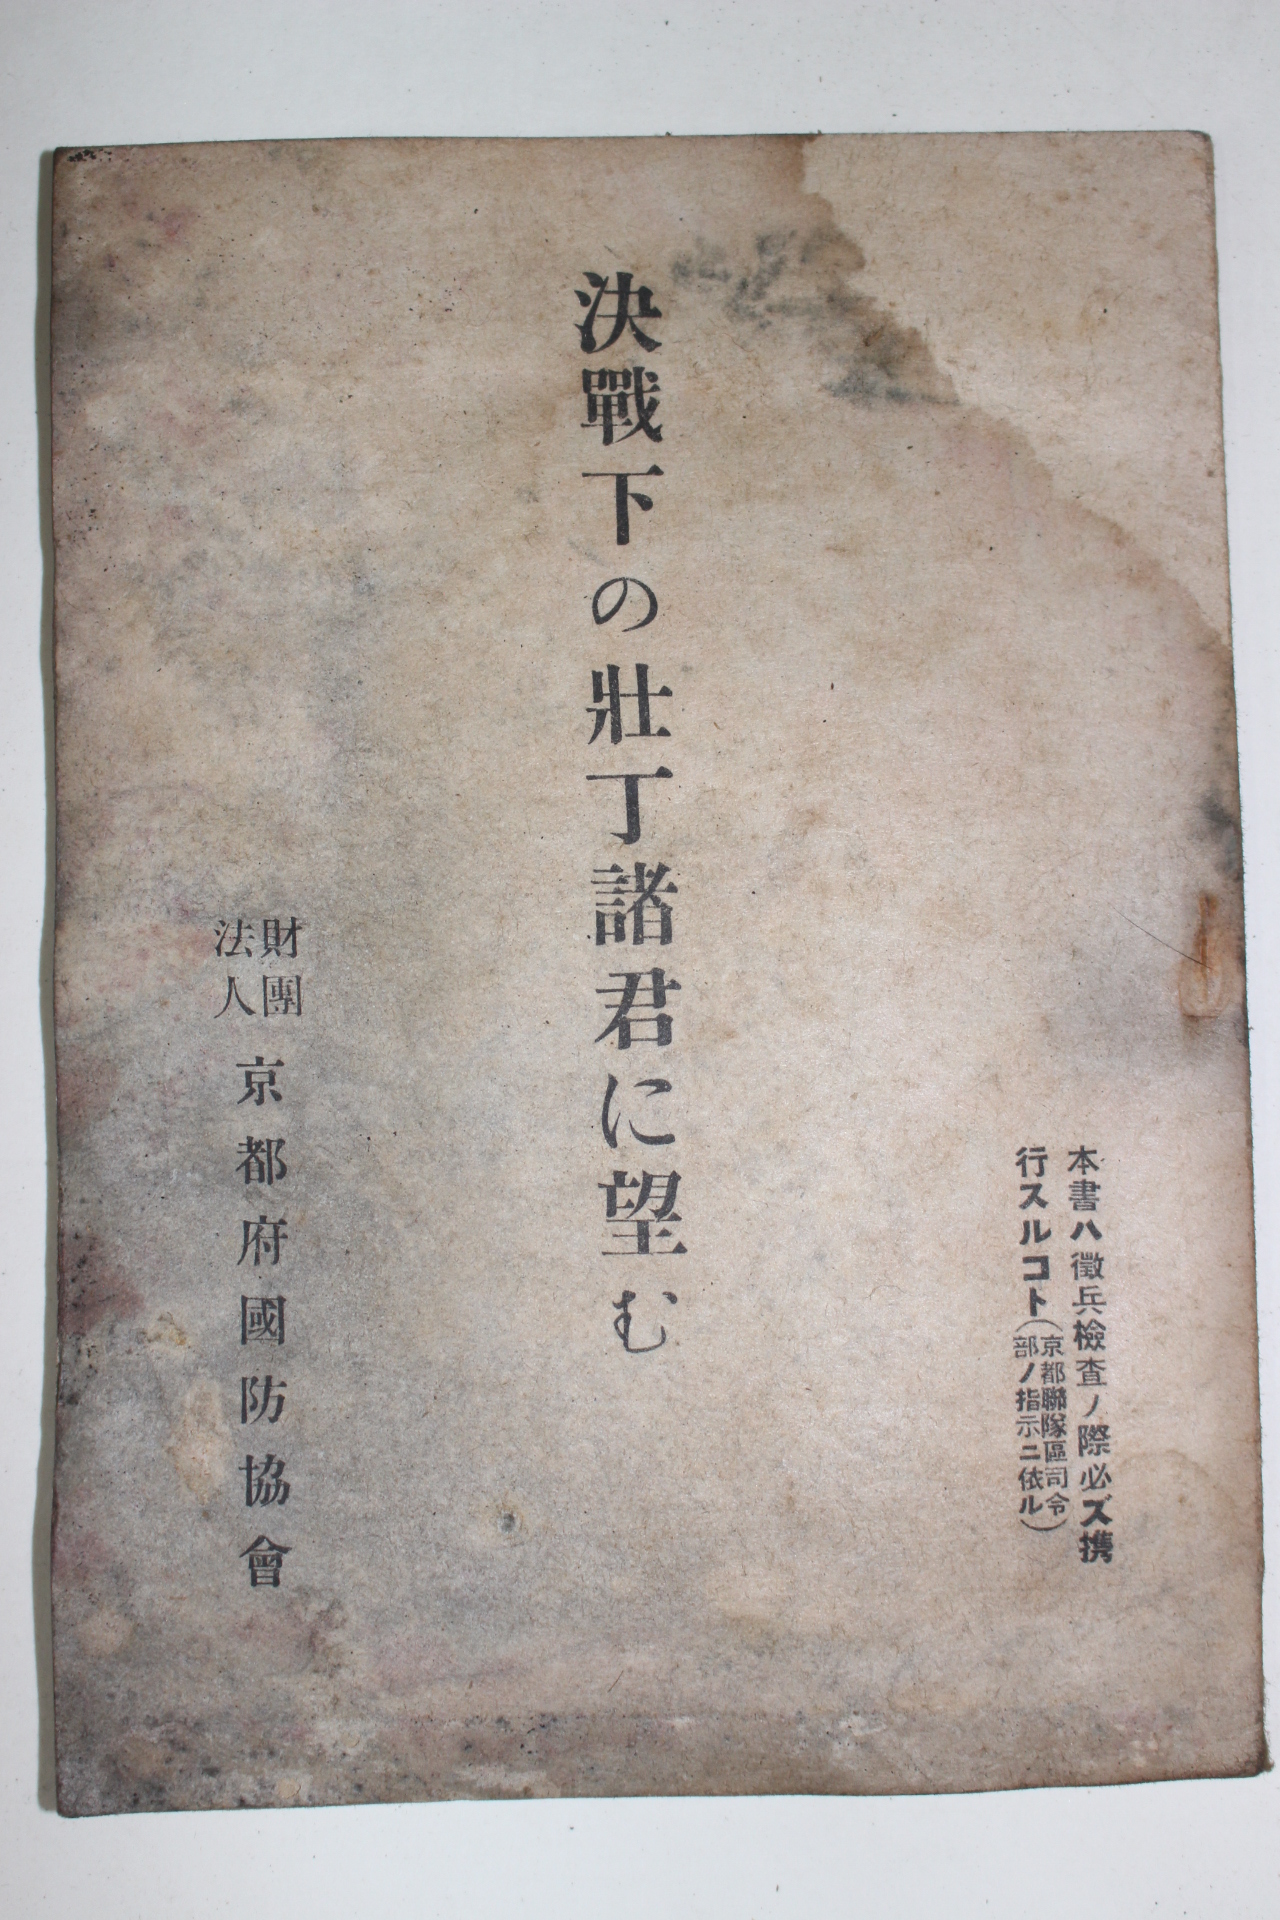 本書ハ徴兵檢査ノ際必ズ携
行スルコト(京都聯隊區司令
部ノ指示ニ依ル)
決戰下の壯丁諸君に望む
財團
法人
京都府國防協會